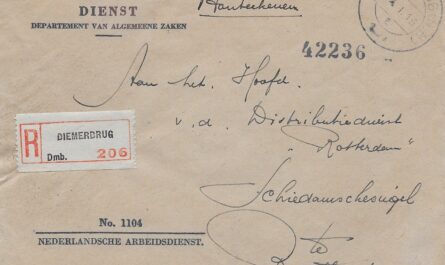 DIENST
DEPARTEMENT VAN ALGEMEENE ZAKEN
42236
Aan het Hoofd
v. d. Distributiedienst
"Rotterdam"
Schiedamschesingel
te
R DIEMERBRUG
Dmb. 206
No. 1104
NEDERLANDSCHE ARBEIDSDIENST.